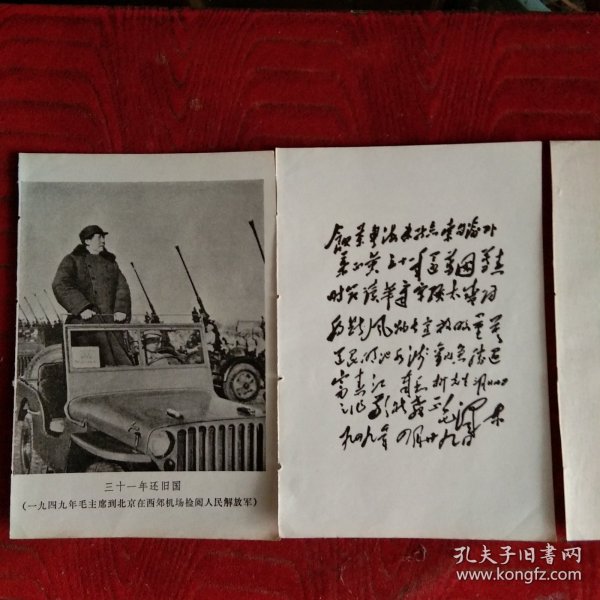 三十一年还旧国
(一九四九年毛主席到北京在西郊机场检阅人民解放军)
饮茶粤海未能忘索句渝州
叶正黄三十一年还旧国落花
时节读华章牢骚太盛防
肠断风物长宜放眼量莫
道昆明池水浅观鱼胜过
富春江
毛泽东
一九四九年四月廿九日
孔夫子旧书网
www.kongfz.com